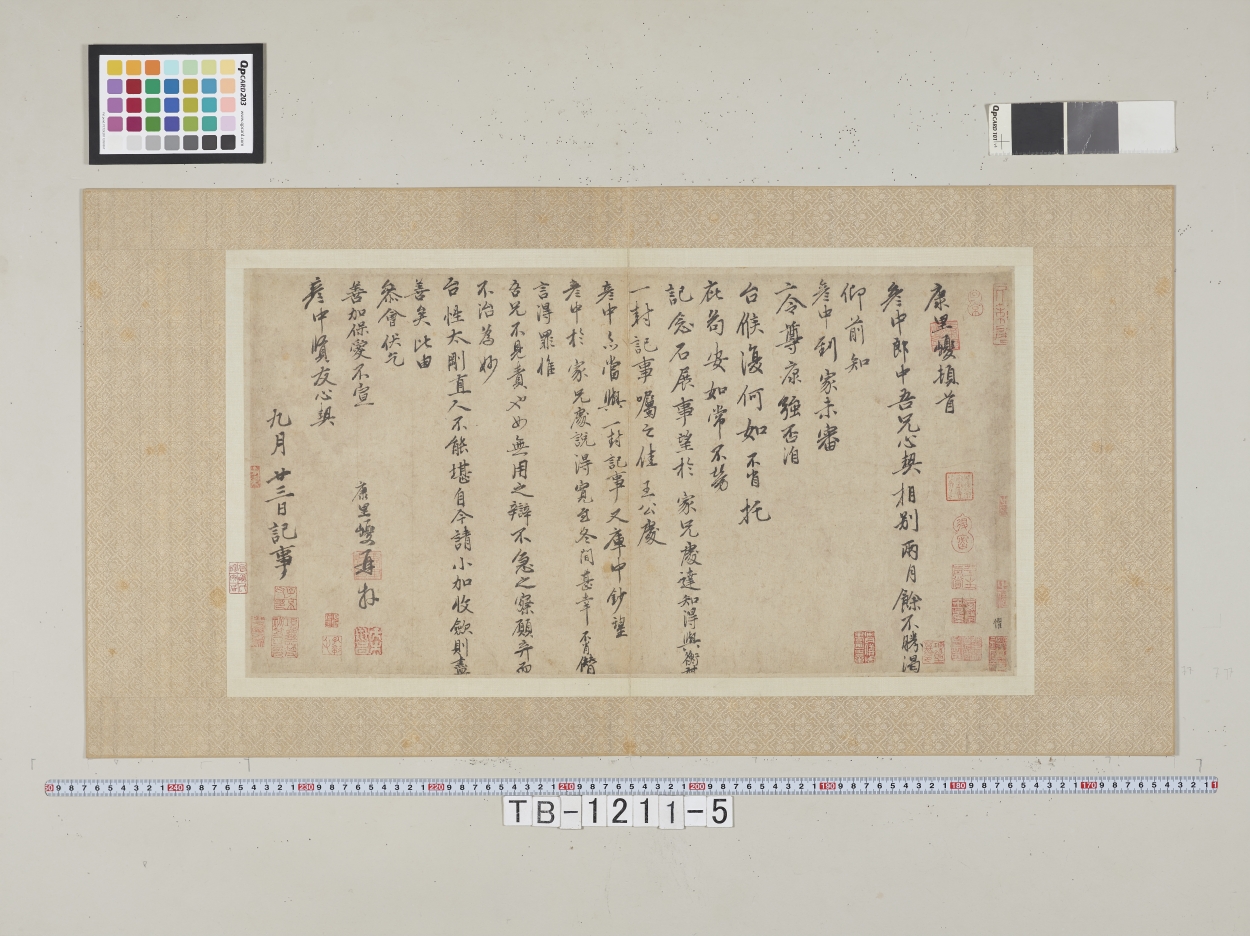 康里巎頓首
彦中郎中吾兄心契相别兩月餘不勝渴
仰前知
彦中到家未審
令尊康強否洎
台候復何如不肖托
庇苟安如常不勞
記念石展事望於家兄處達知得與衡
一封記事囑之佳王公處
彦中亦當與一封記事又庫中鈔望
彦中於家兄處説得寛至冬間甚幸不肖僭
言得罪惟
吾兄不見責也如無用之辯不急之察願弃而
不治為妙
台性太剛直人不能堪自今請小加收斂則盡
善矣比由
叅會伏乞
善加保愛不宣
康里巎再拜
彦中賢友心契
九月廿三日記事
QPCARD 203
QPCARD 101
TB-1211-5